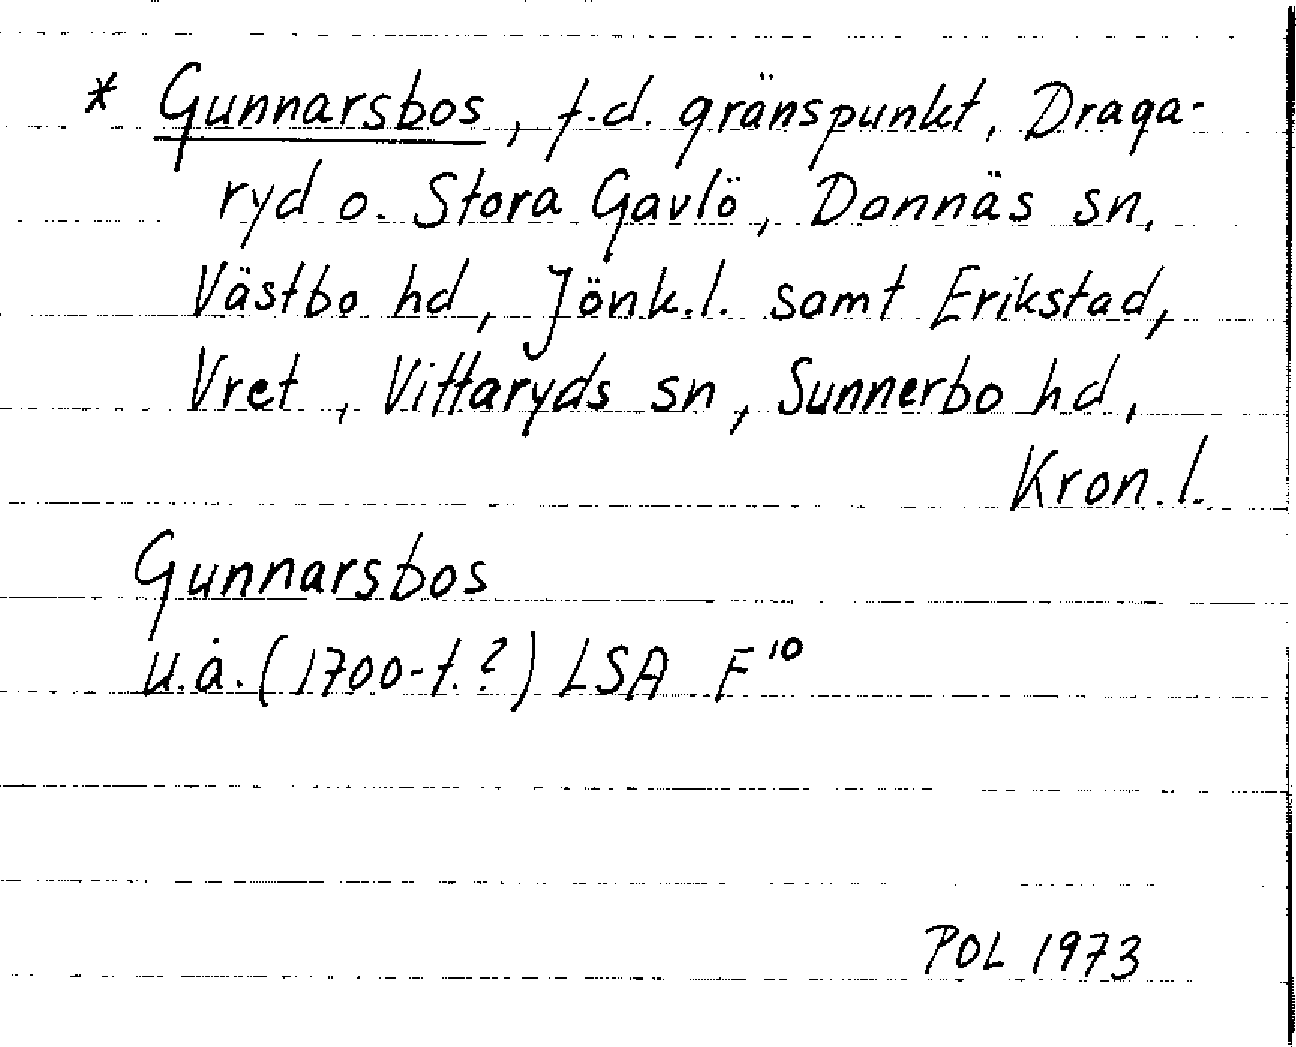 * Gunnarsbos, f.d. gränspunkt, Draga-
ryd o. Stora Gavlö, Dannäs sn,
Västbo hd, Jönk.l. samt Erikstad,
Vret, Vittaryds sn, Sunnerbo hd,
Kron.l.
Gunnarsbos
u.å. (1700-t.?) LSA F¹⁰
POL 1973